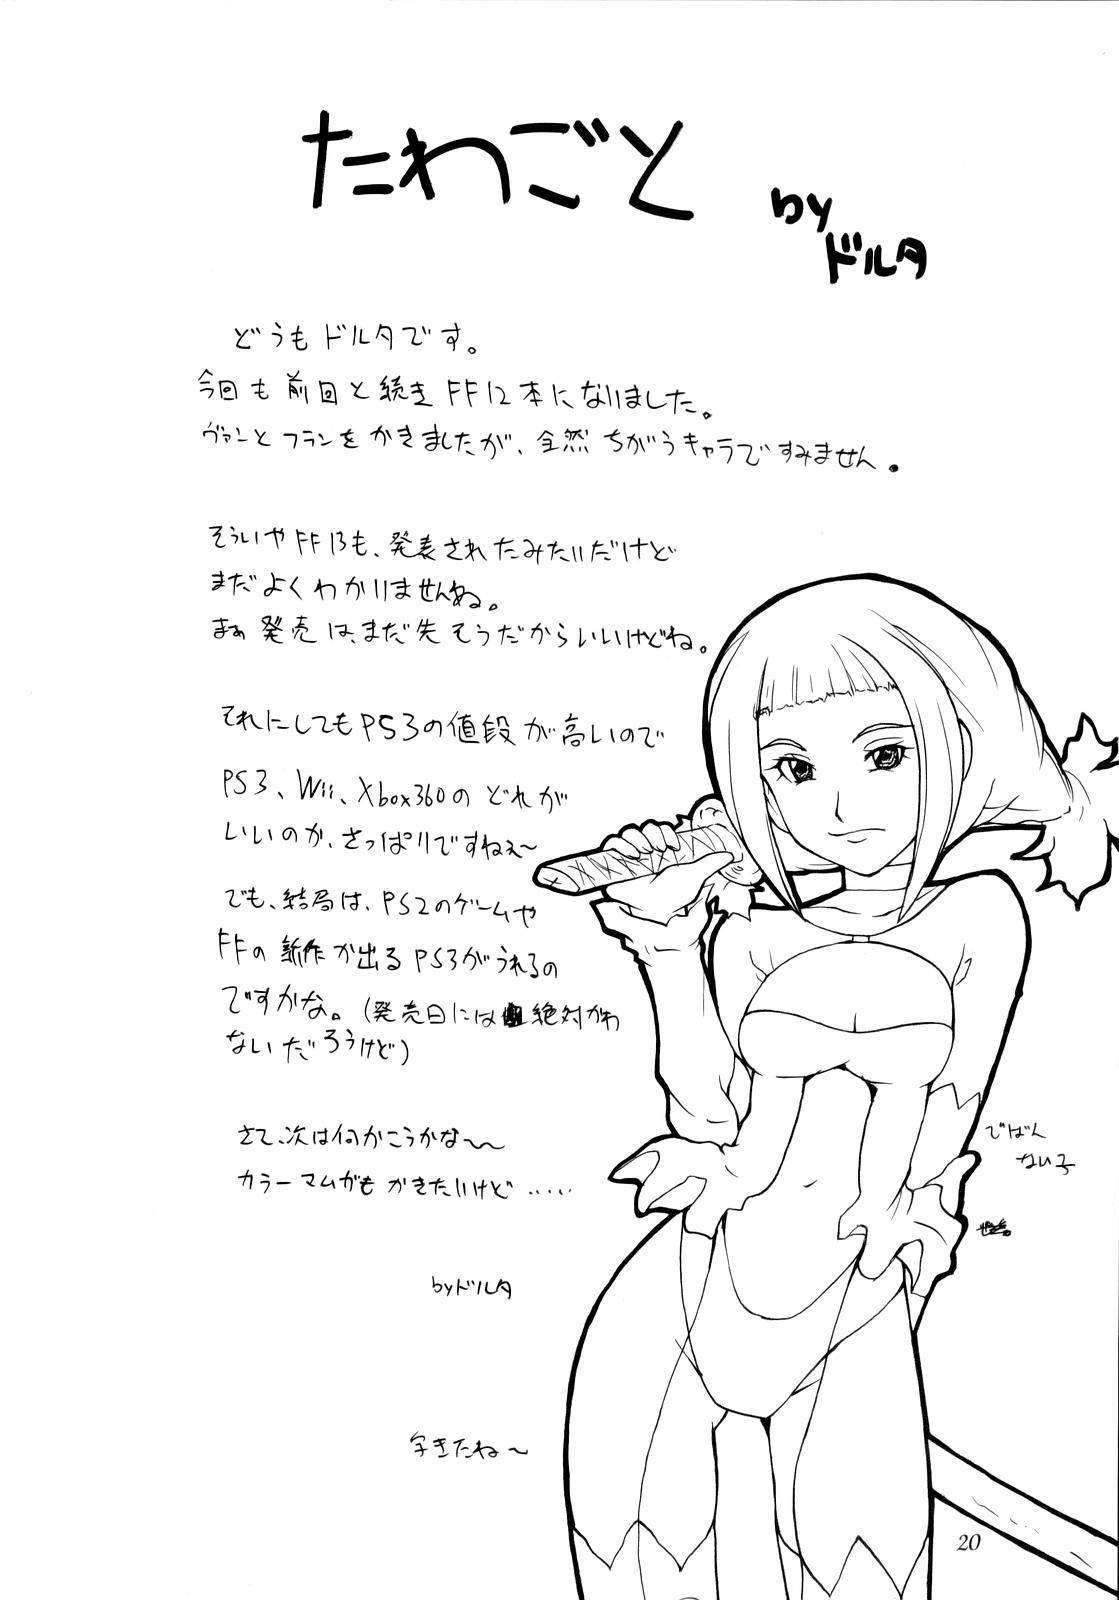 たわごと
by
ドルタ
どうもドルタです。
今回も前回と続きFF12本になりました。
ヴァンとフランをかきましたが、全然ちがうキャラですみません。
そういやFF13も、発表されたみたいだけど
まだよくわかりませんね。
まぁ発売は、まだ先そうだからいいけどね。
それにしてもPS3の値段が高いので
PS3、Wii、Xbox360のどれが
いいのか、さっぱりですねぇ〜
でも、結局は、PS2のゲームや
FFの新作が出るPS3がうれるの
ですかな。(発売日には絶対かわ
ないだろうけど)
さて、次は何かこうかな〜〜
カラーマムガもかきたいけど‥‥‥
でばん
ない子
byドルタ
字きたね〜
20